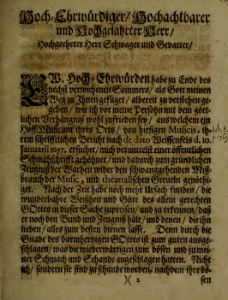 Hoch-Ehrwürdiger/ Hochachtbarer
und Hochgelahrter Herr/
Hochgeehrter Herr Schwager und Gevatter/
EW. Hoch-Ehrwürden habe zu Ende des
nechst verwichenen Sommers/ als Gott meinen
Weg zu Ihnen gefüget/ allbereit zu verstehen ge-
geben/ wie ich vor meine Person mit dem gött-
lichen Verhängniß wohl zufrieden sey/ aus welchem ein
Hoff-Musicant ihres Orts/ von hiesigen Musicis, ih-
rem schrifftlichen Bericht nach de dato Weissenfels d.
Januarii 1697. ersucht/ mich vermittelst einer öffentlichen
Schmähschrifft gehöhnet/ und dadurch zum gründlichen
Zeugniß der Warheit wider den schwangehenden Miß-
brauch der Music, und uncarnalischen Greueln genöthi-
get. Nach der Zeit habe noch mehr Ursach funden/ die
wunderbahre Weißheit und Güte des allein gerechten
GOttes in dieser Sache zu preisen/ und zu erkennen/ daß
er noch den Bund und Zeugniß halte/ und denen/ die ihn
lieben/ alles zum besten dienen lasse. Denn durch die
Gnade des barmhertzigen GOttes ist zum guten ausge-
schlagen/ was die wiederwärtigen zum bösen und zu mei-
ner Schmach und Schande angeschlagen hatten. Nicht
ich/ sondern sie sind zu schanden worden/ nachdem ihre bö-
)( 2 sen